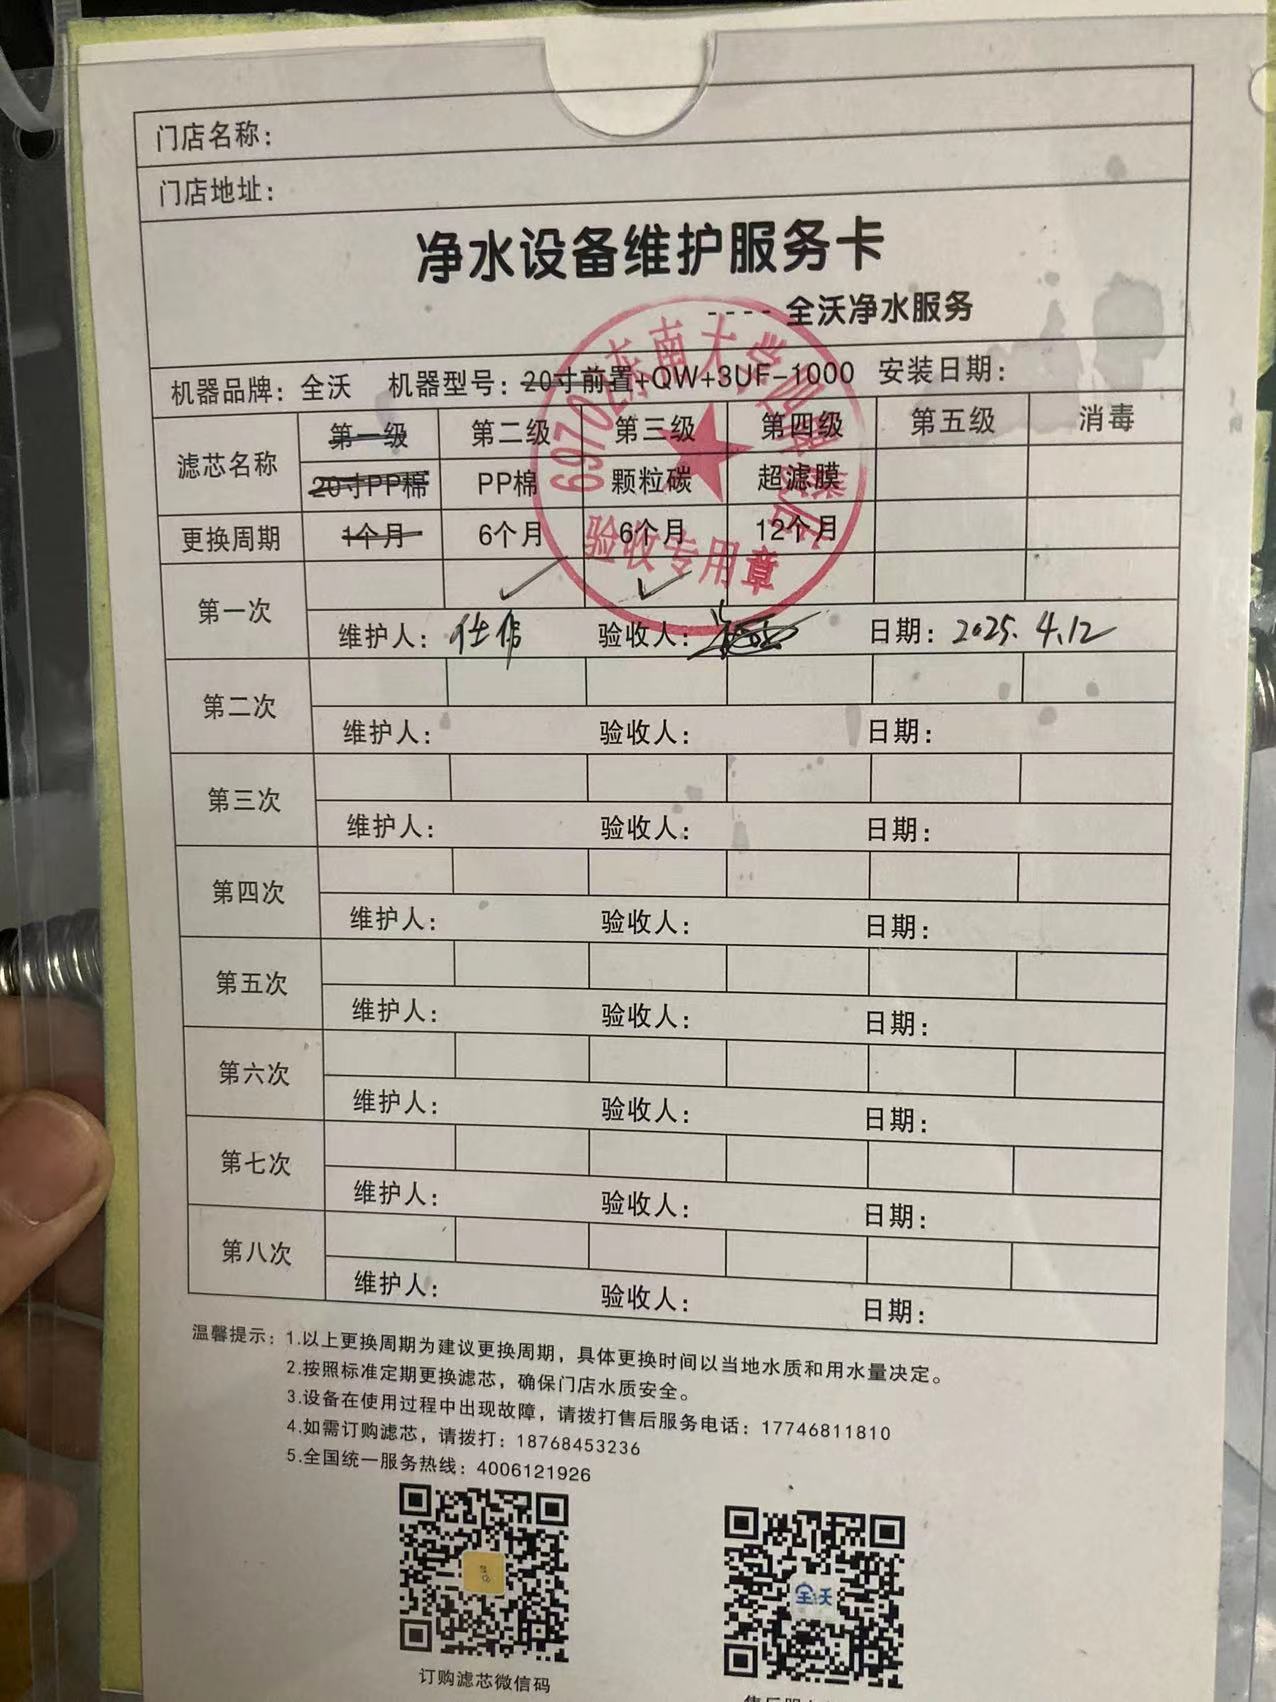 门店名称：
门店地址：
净水设备维护服务卡
---- 全沃净水服务
机器品牌：全沃 机器型号：20寸前置+QW+3UF-1000 安装日期：
滤芯名称 第一级 第二级 第三级 第四级 第五级 消毒
20寸PP棉 PP棉 颗粒碳 超滤膜
更换周期 1个月 6个月 6个月 12个月
69702东南大学四牌楼店
验收专用章
第一次 ✓ ✓
维护人： 验收人： 日期：2025.4.12
第二次
维护人： 验收人： 日期：
第三次
维护人： 验收人： 日期：
第四次
维护人： 验收人： 日期：
第五次
维护人： 验收人： 日期：
第六次
维护人： 验收人： 日期：
第七次
维护人： 验收人： 日期：
第八次
维护人： 验收人： 日期：
温馨提示：1.以上更换周期为建议更换周期，具体更换时间以当地水质和用水量决定。
2.按照标准定期更换滤芯，确保门店水质安全。
3.设备在使用过程中出现故障，请拨打售后服务电话：17746811810
4.如需订购滤芯，请拨打：18768453236
5.全国统一服务热线：4006121926
全沃
订购滤芯微信码